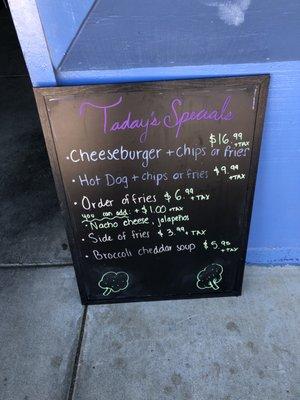 Today's Specials
$16.99 +TAX
• Cheeseburger + chips or fries
• Hot Dog + chips or fries $9.99 +TAX
• Order of fries $6.99 +TAX
you can add: + $1.00 +TAX
• Nacho cheese, jalapeños
• Side of fries $3.99 +TAX
• Broccoli cheddar soup $5.95 +TAX